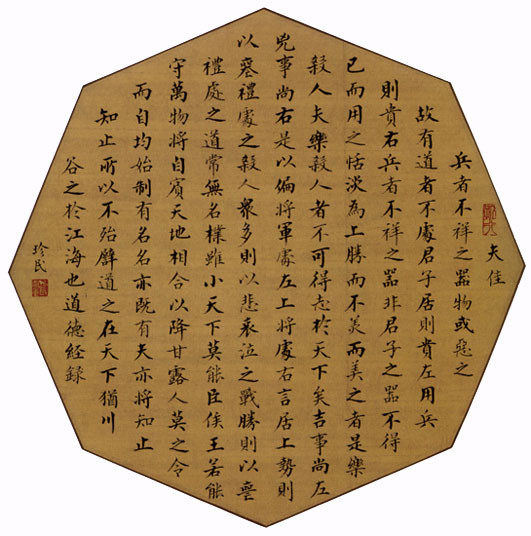 夫佳
兵者不祥之器物或惡之
故有道者不處君子居則貴左用兵
則貴右兵者不祥之器非君子之器不得
已而用之恬淡為上勝而不美而美之者是樂
殺人夫樂殺人者不可得志於天下矣吉事尚左
兇事尚右是以偏將軍處左上將處右言居上勢則
以喪禮處之殺人衆多則以悲哀泣之戰勝則以喪
禮處之道常無名樸雖小天下莫能臣侯王若能
守萬物將自賓天地相合以降甘露人莫之令
而自均始制有名名亦既有夫亦將知止
知止所以不殆譬道之在天下猶川
谷之於江海也道德經録
珍民